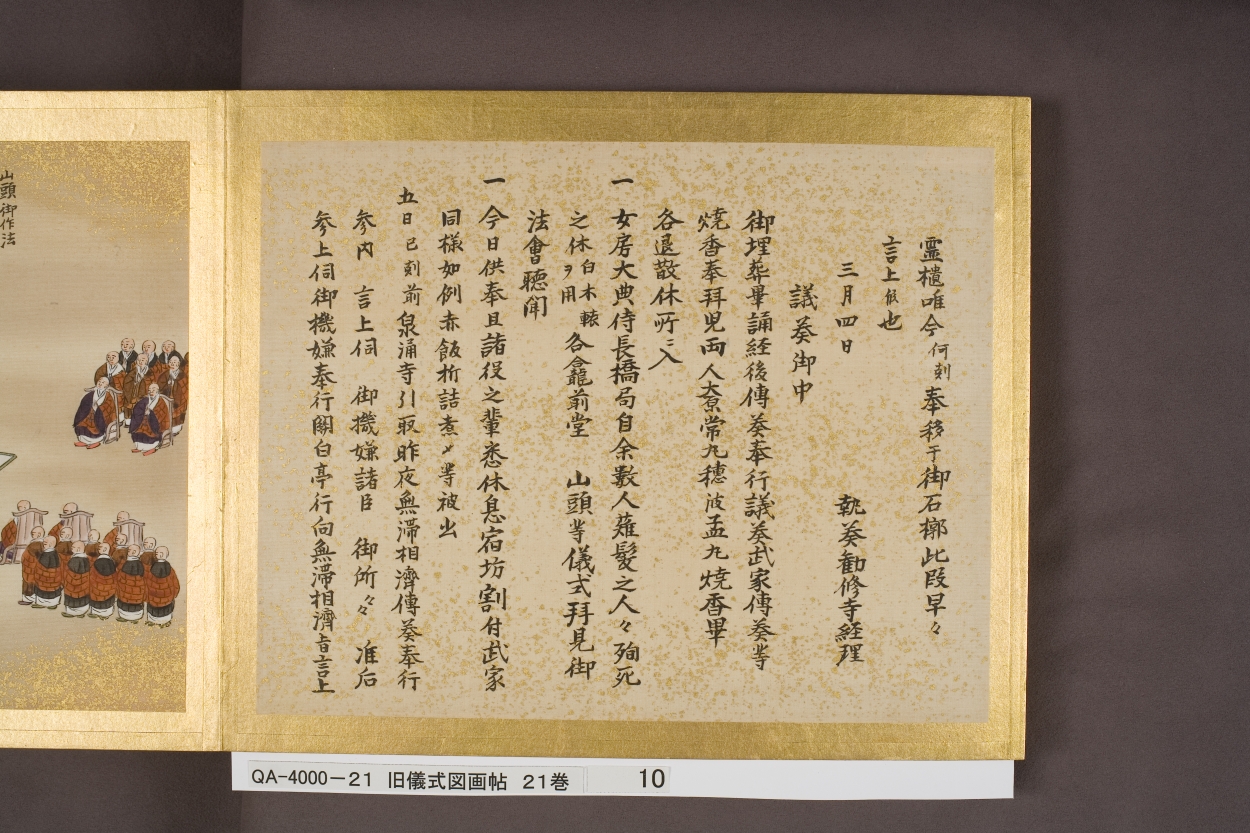 霊櫃唯今何刻奉移于御石槨此段早々
言上候也
三月四日
執奏勸修寺経理
議奏御中
御埋葬畢誦経後傳奏奉行議奏武家傳奏等
焼香奉拝児両人大原常丸穂波孟丸焼香畢
各退散休所ニ入
一女房大典侍長橋局自余數人薙髪之人々殉死
之休白木轅ヲ用各龕前堂 山頭等儀式拝見御
法會聴聞
一今日供奉且諸役之輩悉休息宿坊割付武家
同様如例赤飯折詰煮〆等被出
五日巳刻前泉涌寺引取昨夜無滞相濟傳奏奉行
参内 言上伺 御機嫌諸臣 御所々々 准后
参上伺御機嫌奉行關白亭行向無滞相濟旨言上
山頭御作法
QA-4000-21 旧儀式図画帖 21巻 10